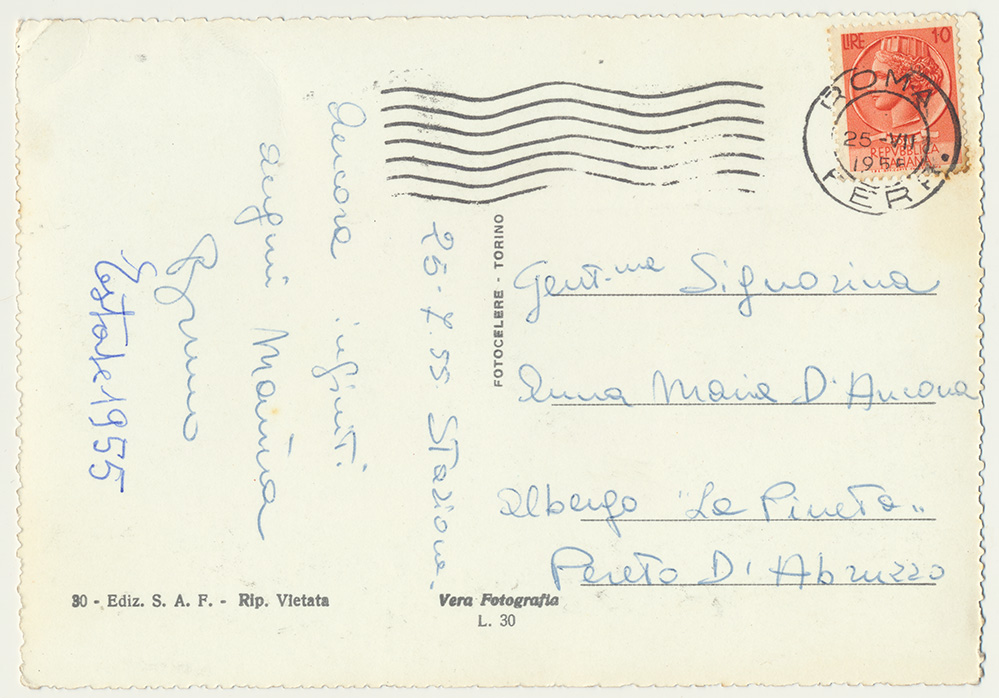 25-7-55 Stazione.
Ancora infiniti
auguri Marina
Bruno
Estate 1955
FOTOCELERE - TORINO
LIRE 10
REPVBBLICA
ITALIANA
ROMA
25-VII
195
FERR.
Gent.ma Signorina
Anna Maria D'Ancona
Albergo "La Pineta"
Pereto D'Abruzzo
30 - Ediz. S. A. F. - Rip. Vietata
Vera Fotografia
L. 30